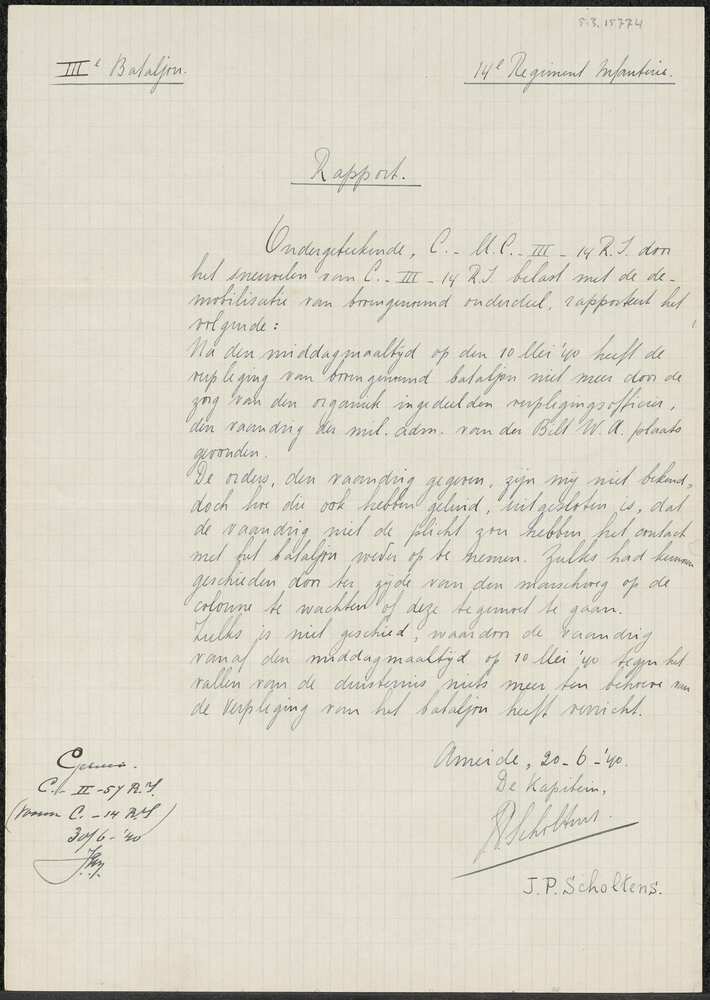 5.3.15774
IIIe Bataljon.
14e Regiment Infanterie.
Rapport.
Ondergetekende, C.-M.C.-III-14 R.I. door
het sneuvelen van C.-III-14 R.I. belast met de de-
mobilisatie van bovengenoemd onderdeel, rapporteert het
volgende:
Na den middagmaaltijd op den 10 Mei '40 heeft de
verpleging van bovengenoemd bataljon niet meer door de
zorg van den organiek ingedeelden verplegingsofficier,
den vaandrig der mil. adm. van der Bilt W.A. plaats
gevonden.
De orders, den vaandrig gegeven, zijn mij niet bekend,
doch hoe die ook hebben geluid, uitgesloten is, dat
de vaandrig niet de plicht zou hebben het contact
met het bataljon weder op te nemen. Zulks had kunnen
geschieden door ter zijde van den marschweg op de
colonne te wachten of deze tegemoet te gaan.
Zulks is niet geschied, waardoor de vaandrig
vanaf den middagmaaltijd op 10 Mei '40 tegen het
vallen van de duisternis niets meer ten behoeve van
de verpleging van het bataljon heeft verricht.
Ameide, 20-6-'40.
De Kapitein,
JPScholtens.
J.P. Scholtens.
Gezien.
C.-II-54 R.I.
(voorm C.-14 R.I)
30/6-'40